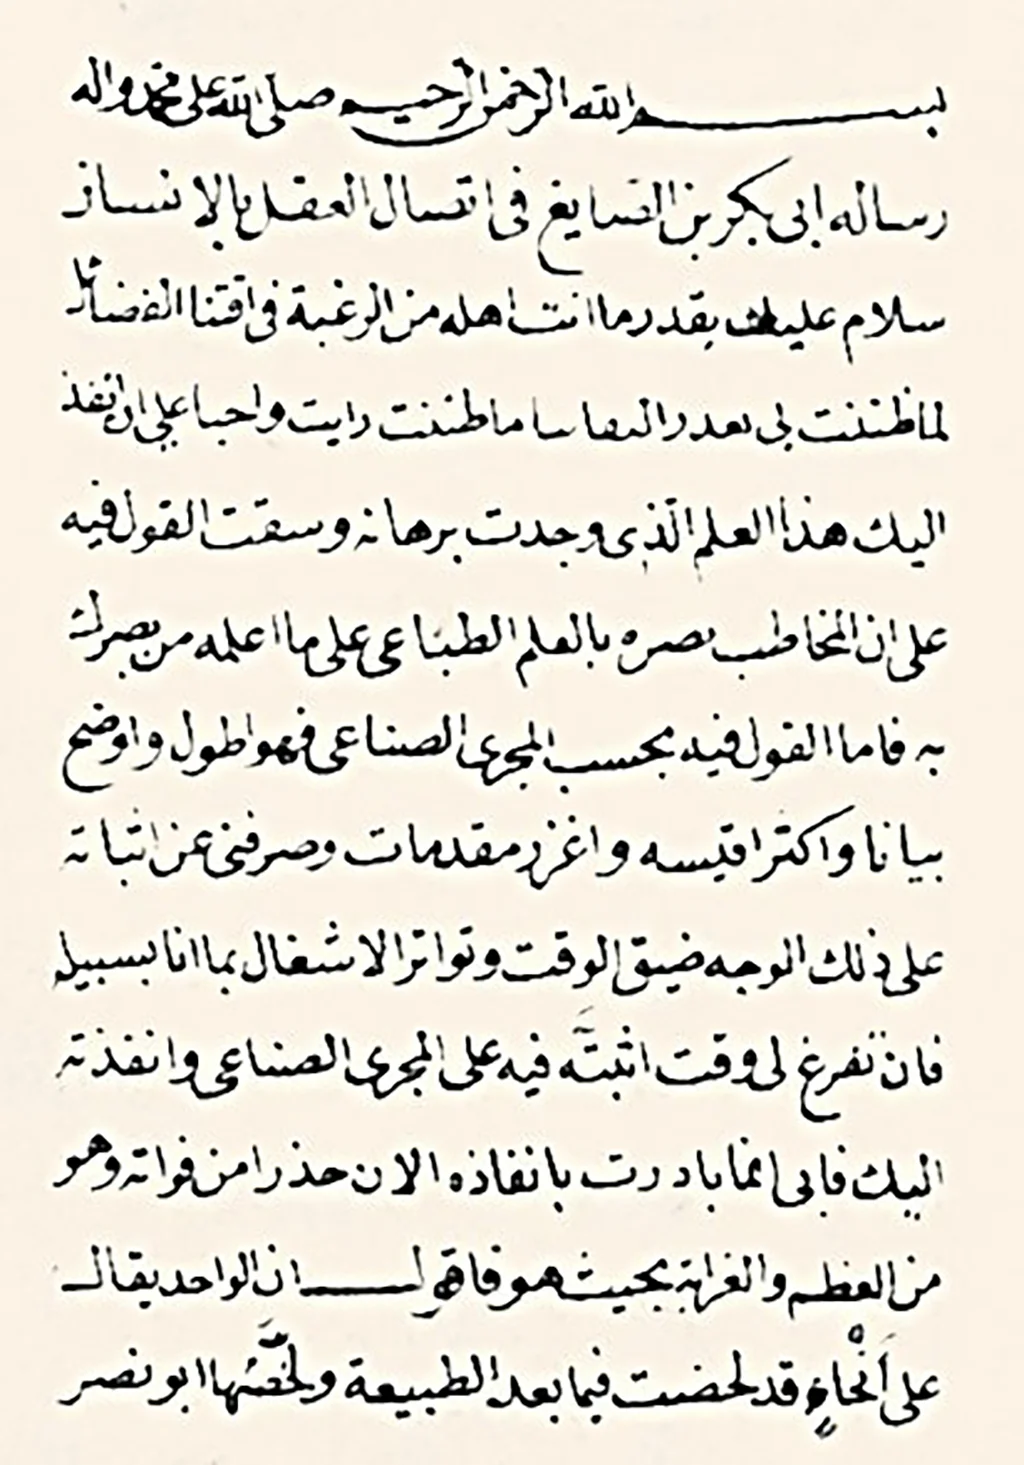 بسم الله الرحمن الرحيم صلى الله على محمد واله
رساله ابى بكر بن الصايغ فى اتصال العقل بالانسان
سلام عليك بقدر ما انت اهله من الرغبة فى اقتنا الفضائل
لما ظننت بى بعد ما ظننت رايت واجبا على ان انفذ
اليك هذا العلم الذى وجدت برهانه وسقت القول فيه
على ان المخاطب بصره بالعلم الطباعى على ما اعلمه من بصرك
به فاما القول فيه بحسب المجرى الصناعى فهو اطول واوضح
بيانا واكثر اقيسه واغزر مقدمات وصرفنى عن اثباته
على ذلك الوجه ضيق الوقت وتواتر الاشغال بما انا بسبيله
فان تفرغ لى وقت اثبتّه فيه على المجرى الصناعى وانفذته
اليك فانى انما بادرت بانفاذه الان حذرا من فواته وهو
من العظم والغرابة بحيث هو فاقول ان الواحد يقال
على أنْحاءٍ قد لخصت فيما بعد الطبيعة ولخّصها ابو نصر